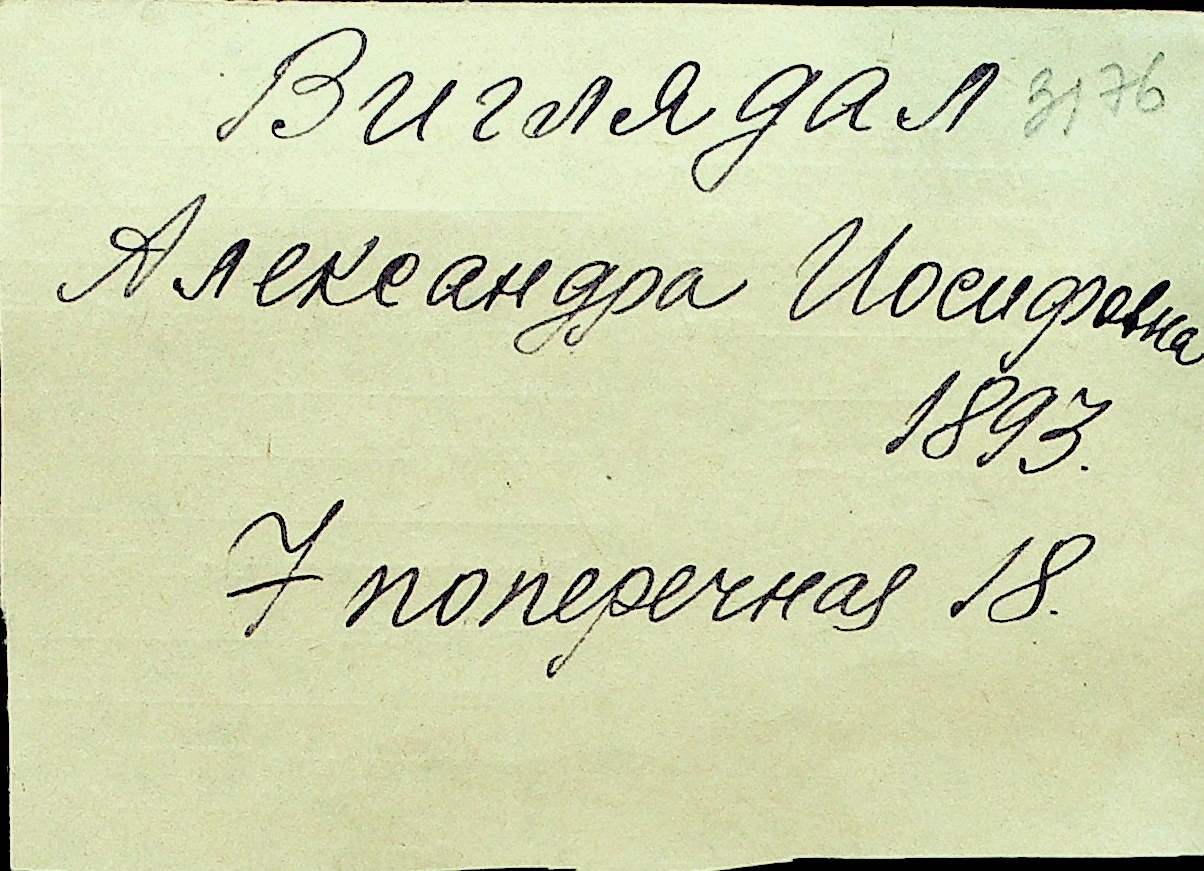 Виглядал 3176
Александра Иосифовна
1893.
7 поперечная 18.